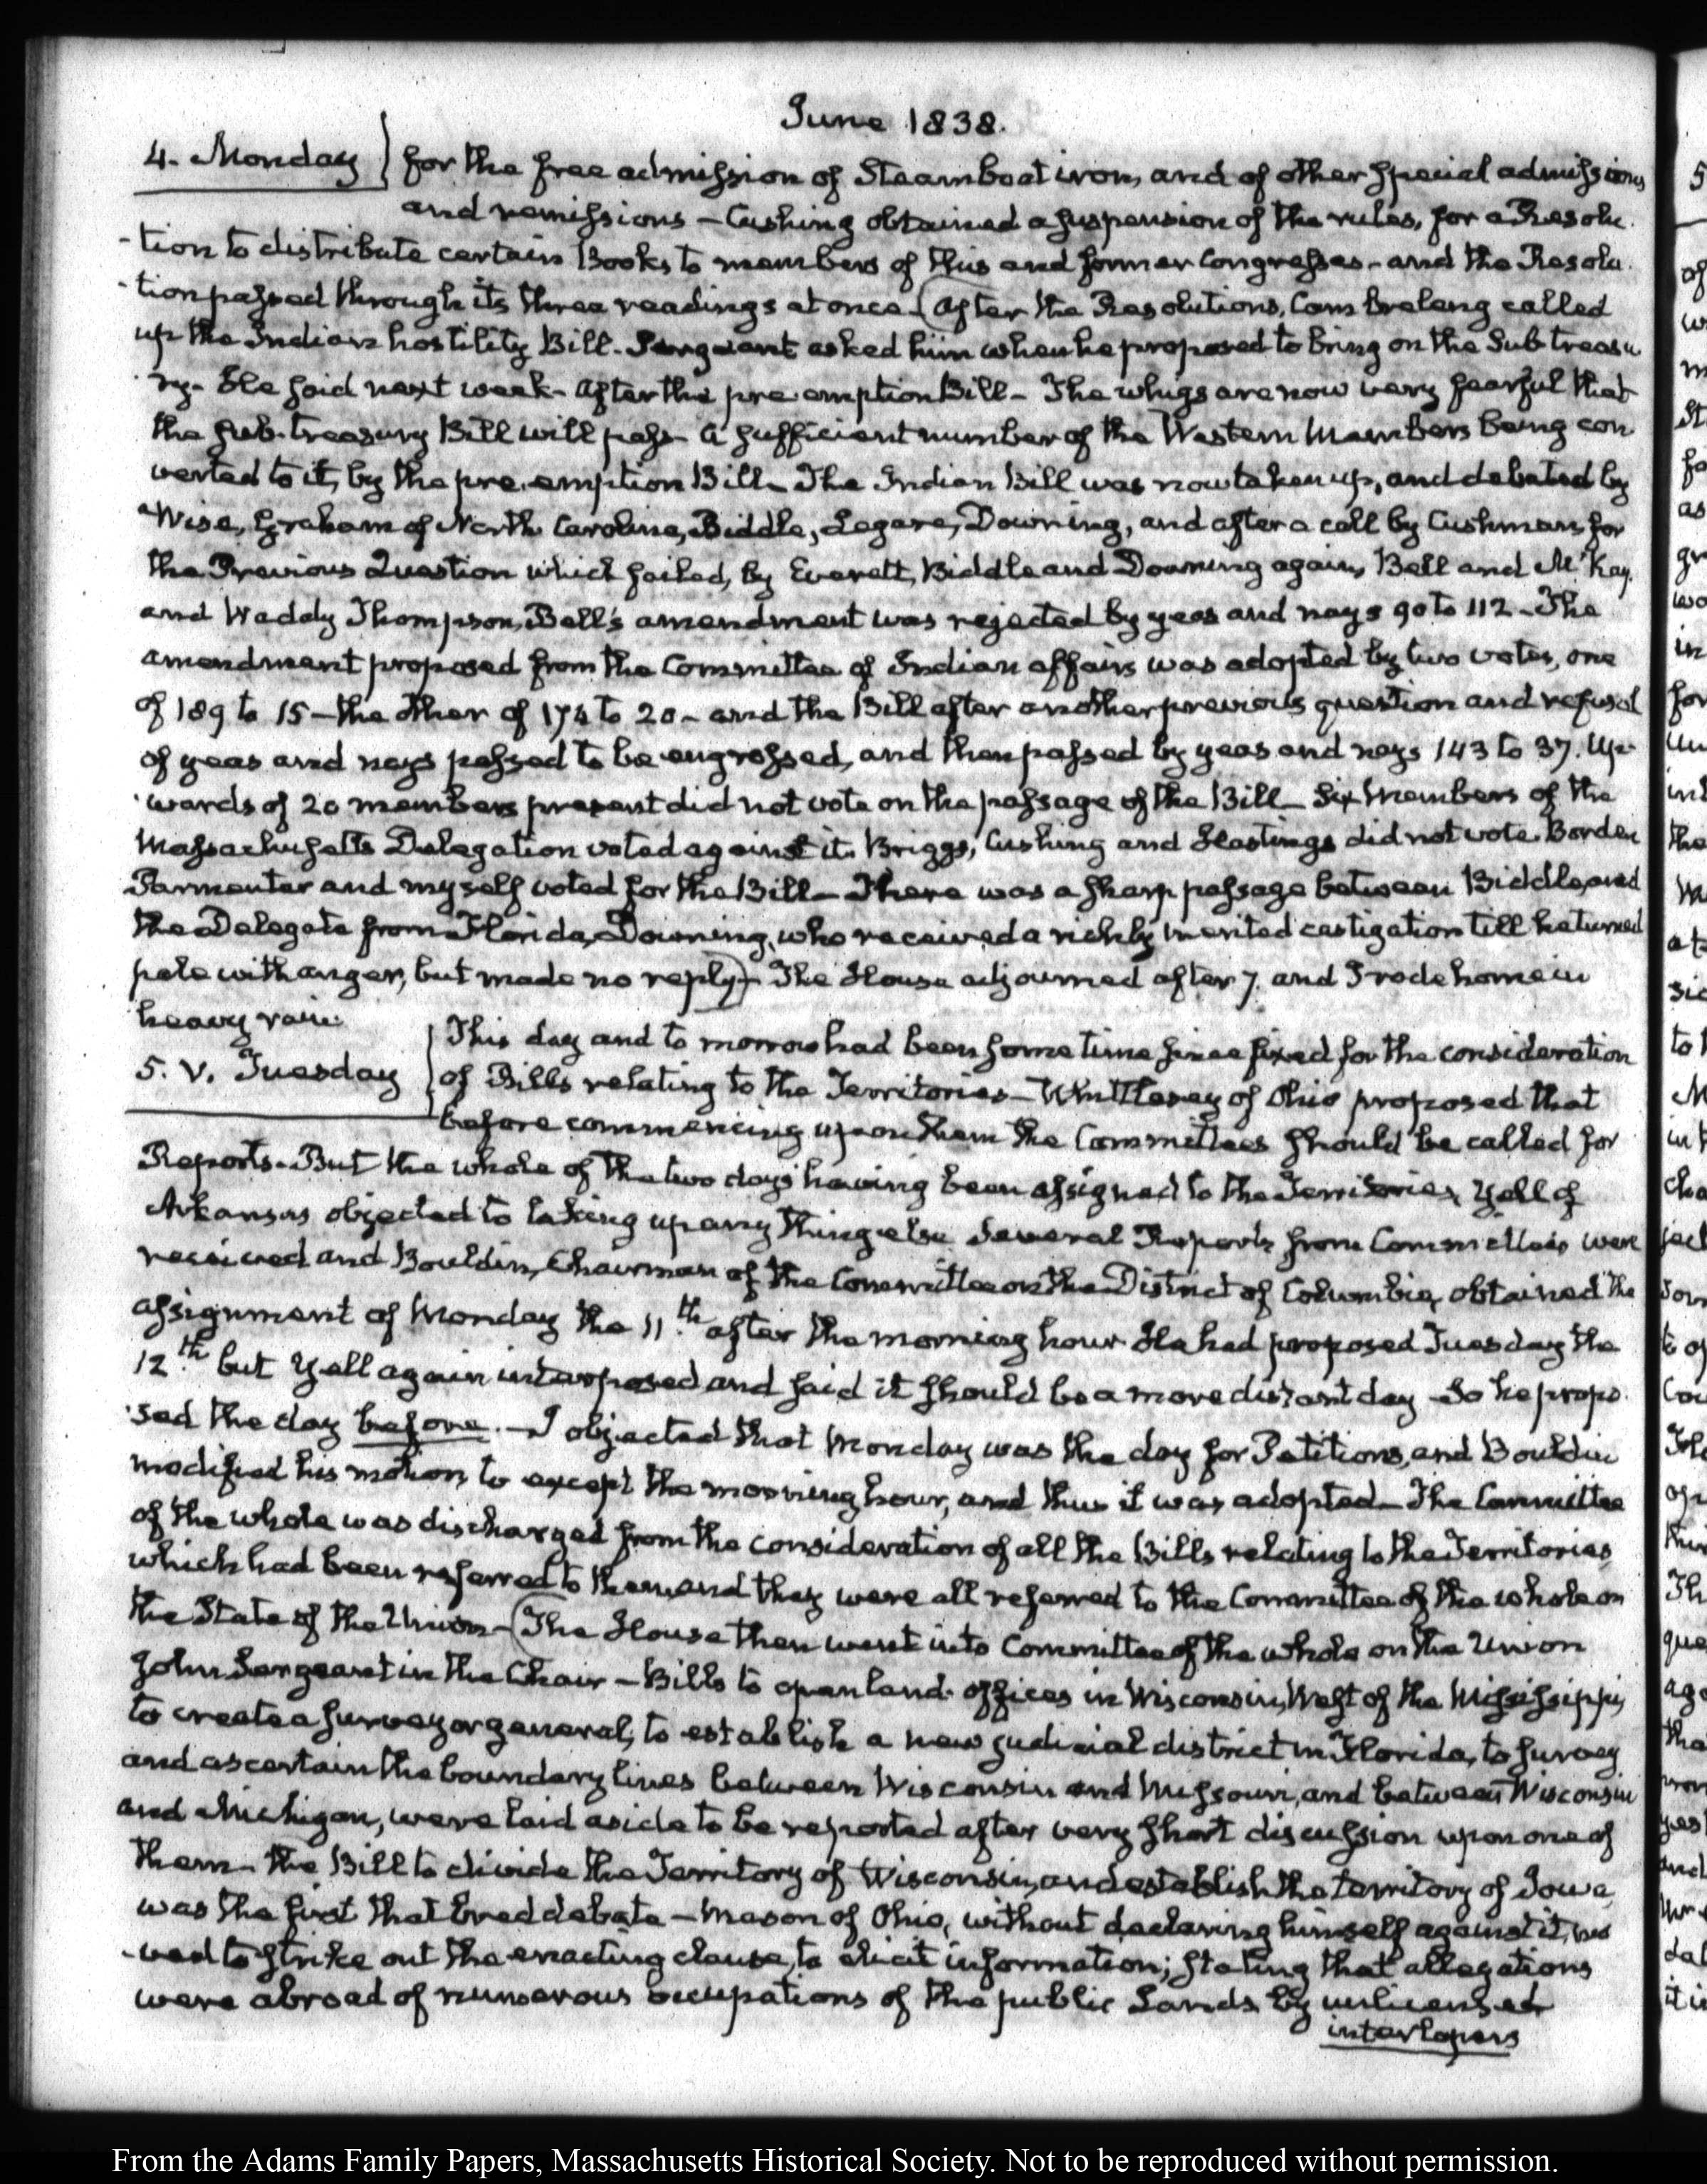 June 1838.
4. Monday
for the free admission of Steamboat iron, and of other special admissions
and remissions – Cushing obtained a suspension of the rules, for a Resolu-
-tion to distribute certain Books to members of this and former Congresses – and the Resolu-
-tion passed through its three readings at once – (After the Resolutions, Cambreleng called
up the Indian hostility Bill. Sergeant asked him when he proposed to bring on the Sub treasu
ry. He said next week – after the pre-emption Bill – The whigs are now very fearful that
the sub-treasury Bill will pass – a sufficient number of the Western Members being con
verted to it, by the pre-emption Bill – The Indian Bill was now taken up, and debated by
Wise, Graham of North Carolina, Biddle, Legare, Downing, and after a call by Cushman for
the Previous Question which failed, by Everett, Biddle and Downing again, Bell and McKay
and Waddy Thompson, Bell's amendment was rejected by yeas and nays 90 to 112 – The
amendment proposed from the Committee of Indian affairs was adopted by two votes, one
of 189 to 15 – the other of 174 to 20 – and the Bill after another previous question and refusal
of yeas and nays passed to be engrossed, and then passed by yeas and nays 143 to 37. Up-
wards of 20 members present did not vote on the passage of the Bill – Six Members of the
Massachusetts Delegation voted against it. Briggs, Cushing and Hastings did not vote. Borden
Parmenter and myself voted for the Bill – There was a sharp passage between Biddle and
the Delegate from Florida, Downing, who received a richly merited castigation till he turned
pale with anger, but made no reply) – The House adjourned after 7. and I rode home in
heavy rain.
5. V. Tuesday
This day and to morrow had been some time since fixed for the consideration
of Bills relating to the Territories – Whittlesey of Ohio proposed that
before commencing upon them the Committees should be called for
Reports. But the whole of the two days having been assigned to the Territories, Yell of
Arkansas objected to taking up any thing else Several Reports from Committees were
received and Bouldin, Chairman of the Committee on the District of Columbia, obtained the
assignment of Monday the 11.th after the morning hour He had proposed Tuesday the
12.th but Yell again interposed and said it should be a more distant day – So he propo-
sed the day before. – I objected that Monday was the day for Petitions, and Bouldin
modified his motion, to except the morning hour, and thus it was adopted – The Committee
of the whole was discharged from the consideration of all the Bills relating to the Territories,
which had been referred to them, and they were all referred to the Committee of the whole on
the State of the Union – (The House then went into Committee of the whole on the Union
John Sergeant in the Chair – Bills to open land-offices in Wisconsin, West of the Mississippi,
to create a surveyor general, to establish a new judicial district in Florida, to survey
and ascertain the boundary lines between Wisconsin and Missouri, and between Wisconsin
and Michigan, were laid aside to be reported after very short discussion upon one of
them – the Bill to divide the Territory of Wisconsin, and establish the territory of Iowa,
was the first that bred debate – Mason of Ohio, without declaring himself against it, mo
-ved to strike out the enacting clause, to elicit information; stating that allegations
were abroad of numerous occupations of the public Lands by unlicensed
interlopers
From the Adams Family Papers, Massachusetts Historical Society. Not to be reproduced without permission.